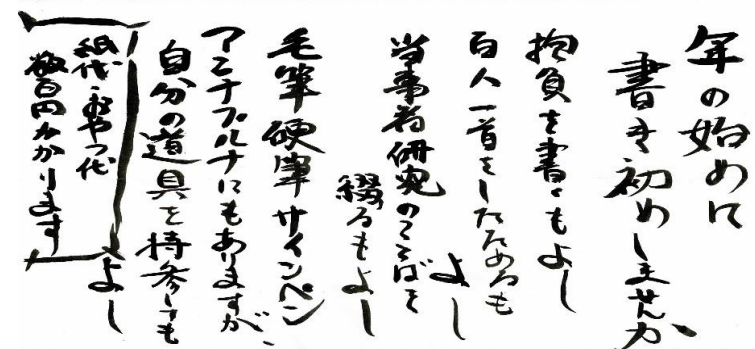 年の始めに
書き初めしませんか
抱負を書くもよし
百人一首をしたためるも
よし
当事者研究のことばを
綴るもよし
毛筆硬筆サインペン
アミナプルナにもありますが、
自分の道具を持参しても
よし
紙代・おやつ代
数百円かかります